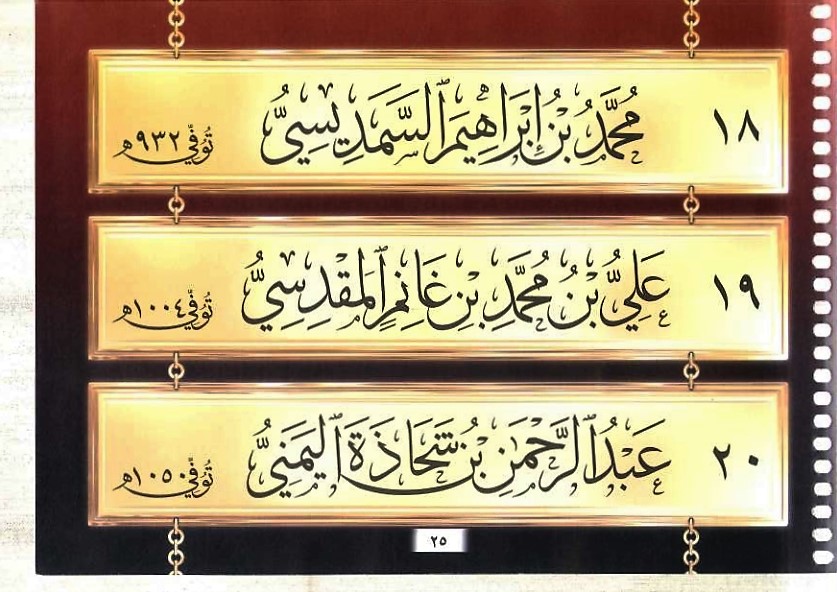 ١٨ مُحَمَّدُ بْنُ إِبْرَاهِيمَ ٱلسَّمَدِيسِيُّ تُوُفِّيَ ٩٣٢هـ
١٩ عَلِيُّ بْنُ مُحَمَّدِ بْنِ غَانِمٍ ٱلمَقْدِسِيُّ تُوُفِّيَ ١٠٠٤هـ
٢٠ عَبْدُ ٱلرَّحْمَٰنِ بْنُ شَحَاذَةَ ٱليَمَنِيُّ تُوُفِّيَ ١٠٥٠هـ
٢٥